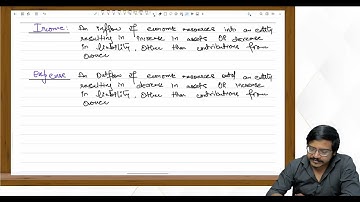 Income: An inflow of economic resources into an entity
resulting in increase in assets OR decrease
in liability, Other than contributions from
owner
Expense An Outflow of economic resources of an entity
resulting in decrease in assets OR increase
in liability, Other than contributions from
owner